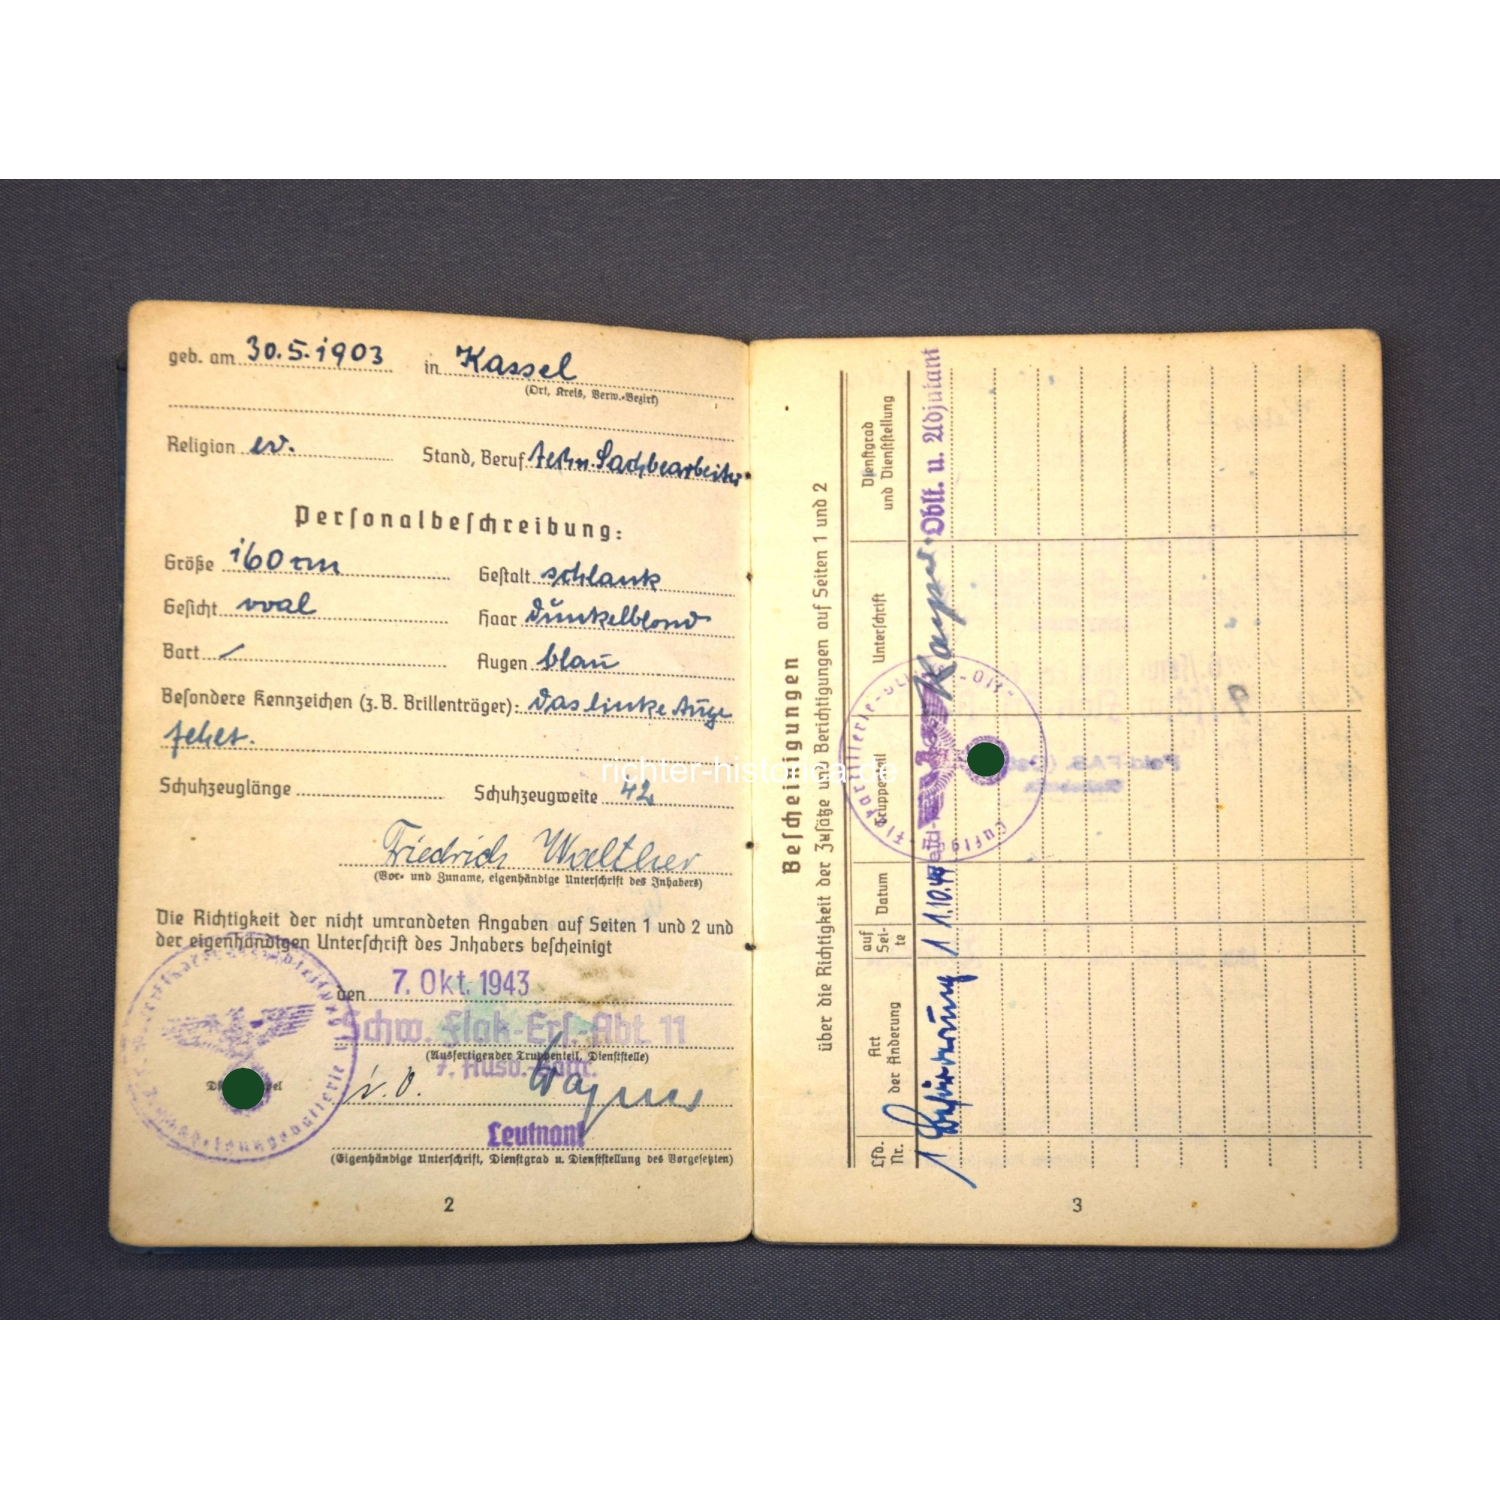 geb. am 30.5.1903 in Kassel
(Ort, Kreis, Verw.-Bezirk)
Religion ev. Stand, Beruf techn. Sachbearbeiter
Personalbeschreibung:
Größe 160 cm Gestalt schlank
Gesicht oval Haar dunkelblond
Bart / Augen blau
Besondere Kennzeichen (z. B. Brillenträger): das linke Auge
fehlt.
Schuhzeuglänge Schuhzeugweite 42
Friedrich Walther
(Vor- und Zuname, eigenhändige Unterschrift des Inhabers)
Die Richtigkeit der nicht umrandeten Angaben auf Seiten 1 und 2 und
der eigenhändigen Unterschrift des Inhabers bescheinigt
den 7. Okt. 1943
Schw. Flak-Ers.-Abt. 11
(Ausfertigender Truppenteil, Dienststelle)
7. Ausb.-Battr.
Wagner
Leutnant
(Eigenhändige Unterschrift, Dienstgrad u. Dienststellung des Vorgesetzten)
2
Bescheinigungen
über die Richtigkeit der Zusätze und Berichtigungen auf Seiten 1 und 2
Lfd. Nr.
Art der Änderung
auf Sei-te
Datum
Truppenteil
Unterschrift
Dienstgrad und Dienststellung
1 Beförderung 1 1.10.44 Oblt. u. Adjutant
3
richter-historica.de